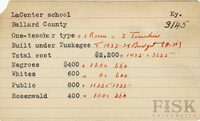 LaCenter school Ky.
Ballard County 3145
One-teacher type + 1 Room = 2 Teacher
Built under Tuskegee
Total cost $2,200 + 1425 = 3625
Negroes $400 + 150 = 550
Whites 600 + 0 = 600
Public 800 +
Rosenwald 400 + 150 = 550
FISK
UNIVERSITY